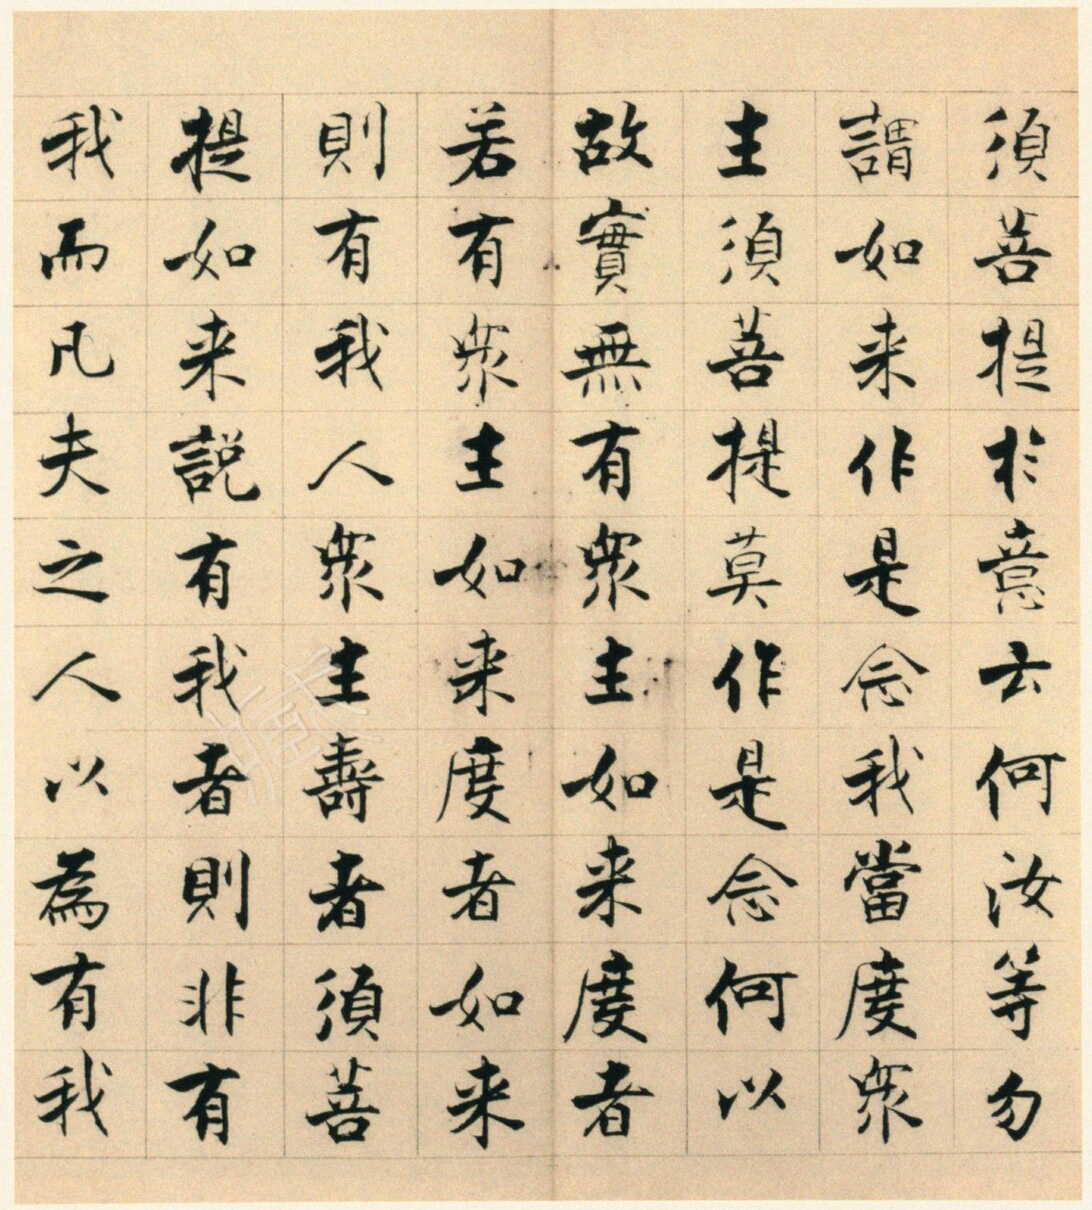 須菩提於意云何汝等勿
謂如来作是念我當度衆
生須菩提莫作是念何以
故實無有衆生如来度者
若有衆生如来度者如来
則有我人衆生壽者須菩
提如来説有我者則非有
我而凡夫之人以為有我